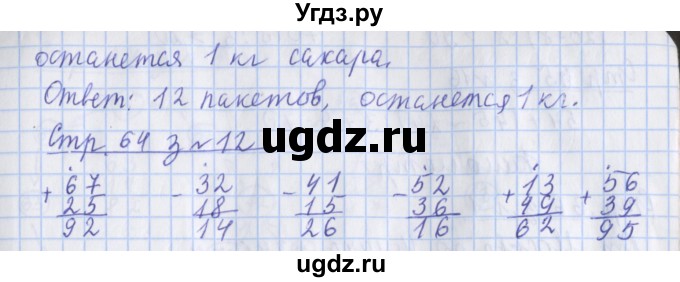 Угдз.ру
останется 1 кг сахара.
Ответ: 12 пакетов, останется 1 кг.
Стр. 64 з №12
ugdz.ru
+ 67 - 32 - 41 - 52 + 13 + 56
25 18 15 36 49 39
92 14 26 16 62 95
ugdz.ru